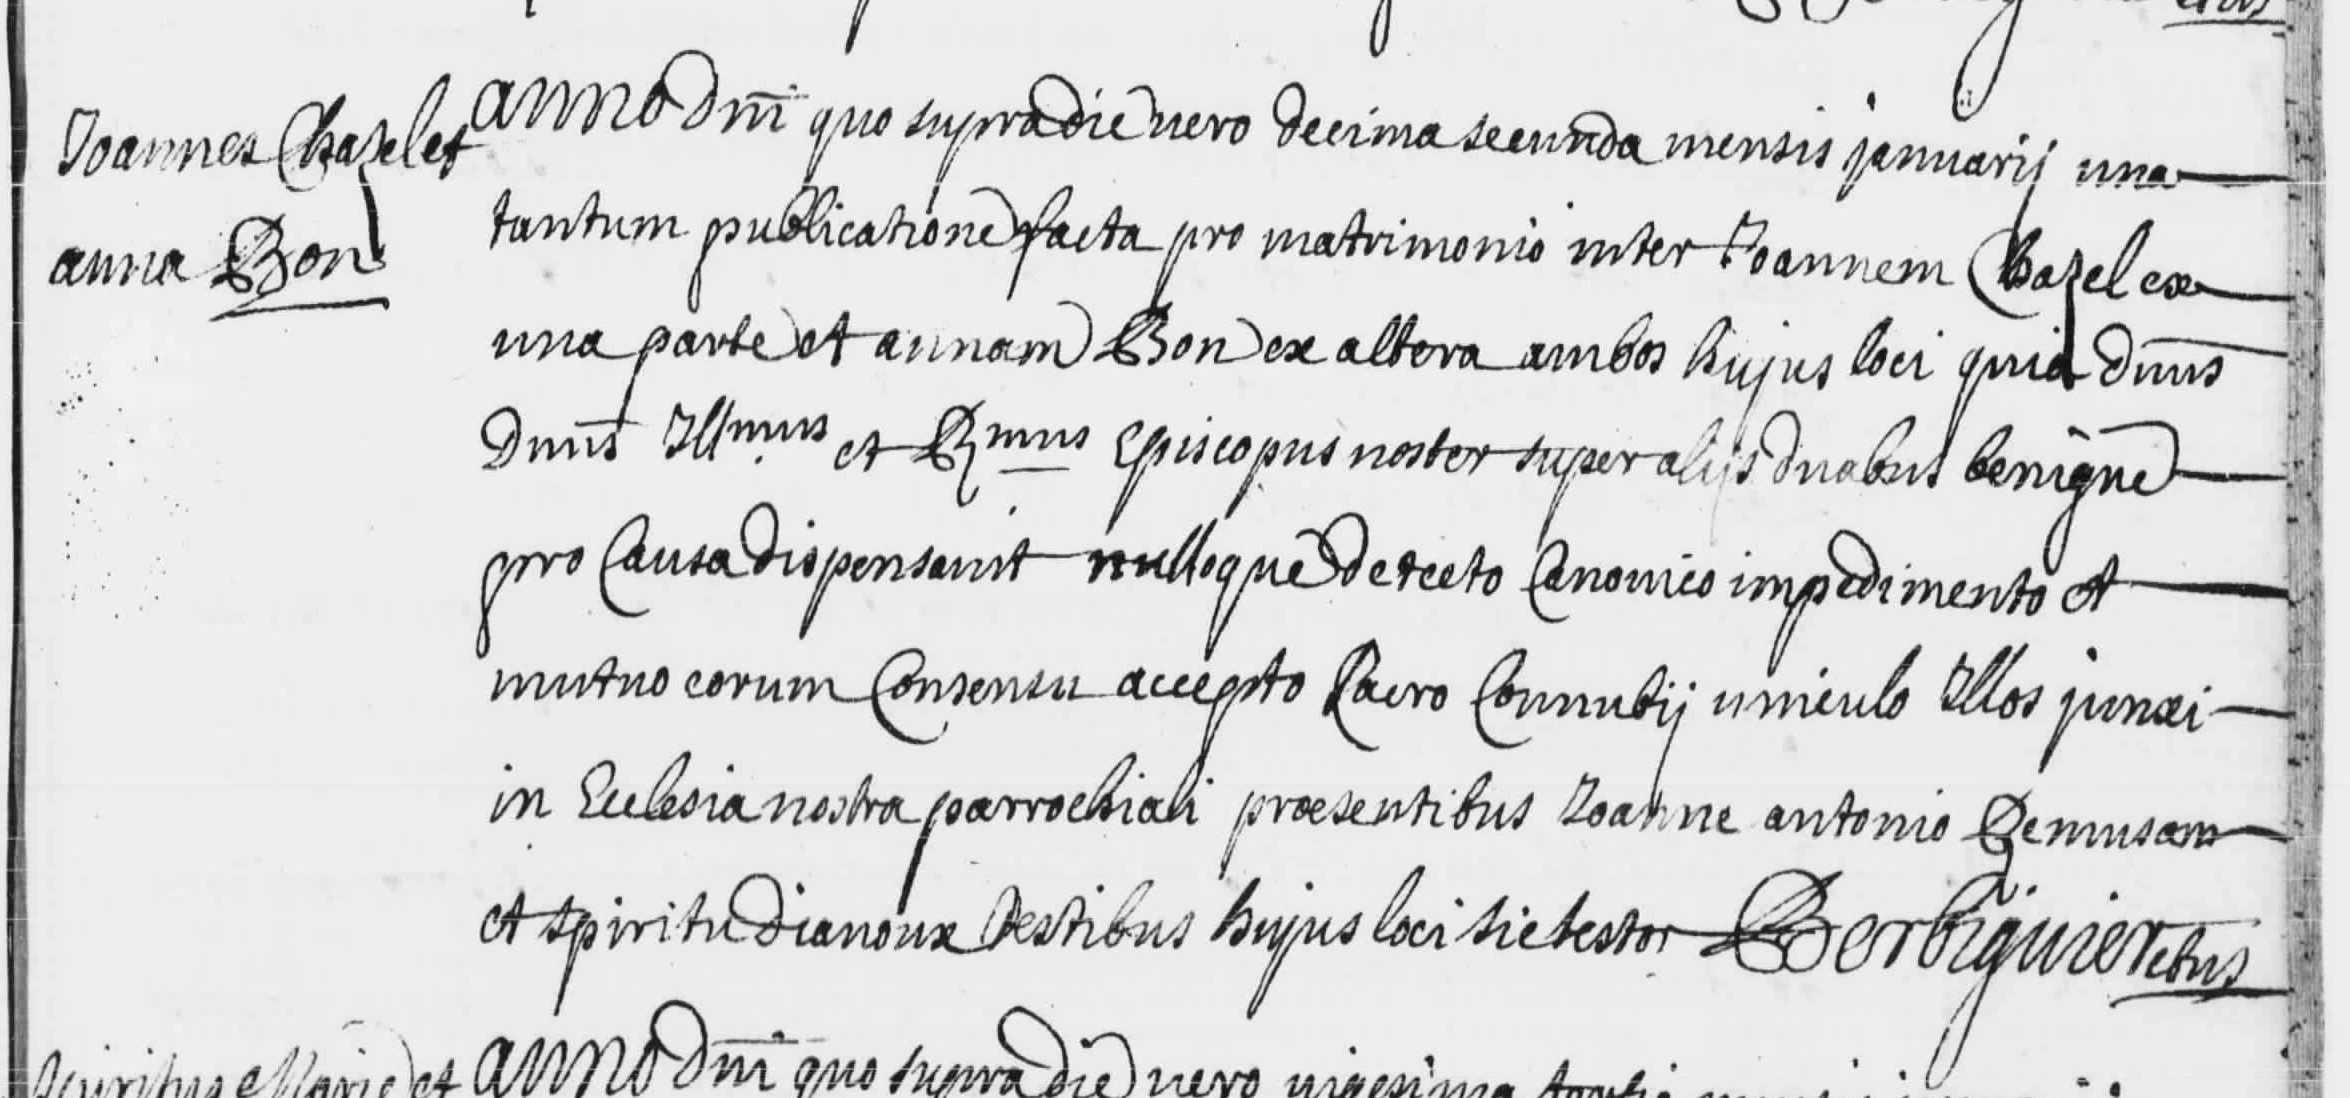 Joannes Chazel et
anna Bon
anno Dni quo supra die vero decima secunda mensis januarij una
tantum publicatione facta pro matrimonio inter Joannem Chazel ex
una parte et annam Bon ex altera ambos hujus loci quia Dnus
Dnus Illmus et Rmus Episcopus noster super alijs duabus benigne
pro Causa dispensavit nulloque detecto Canonico impedimento et
mutuo eorum Consensu accepto Sacro Connubij vinculo Illos junxi
in Ecclesia nostra parrochiali præsentibus Joanne antonio Remusam
et spiritu dianoux testibus hujus loci sic testor Berbiguier
anno Dni quo supra die vero vigesima